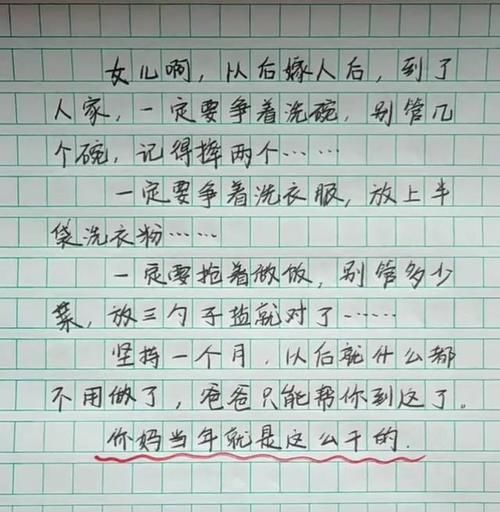 女儿啊，以后嫁人后，到了
人家，一定要争着洗碗，别管几
个碗，记得摔两个……
一定要争着洗衣服，放上半
袋洗衣粉……
一定要抢着做饭，别管多少
菜，放三勺子盐就对了……
坚持一个月，以后就什么都
不用做了，爸爸只能帮你到这了。
你妈当年就是这么干的.